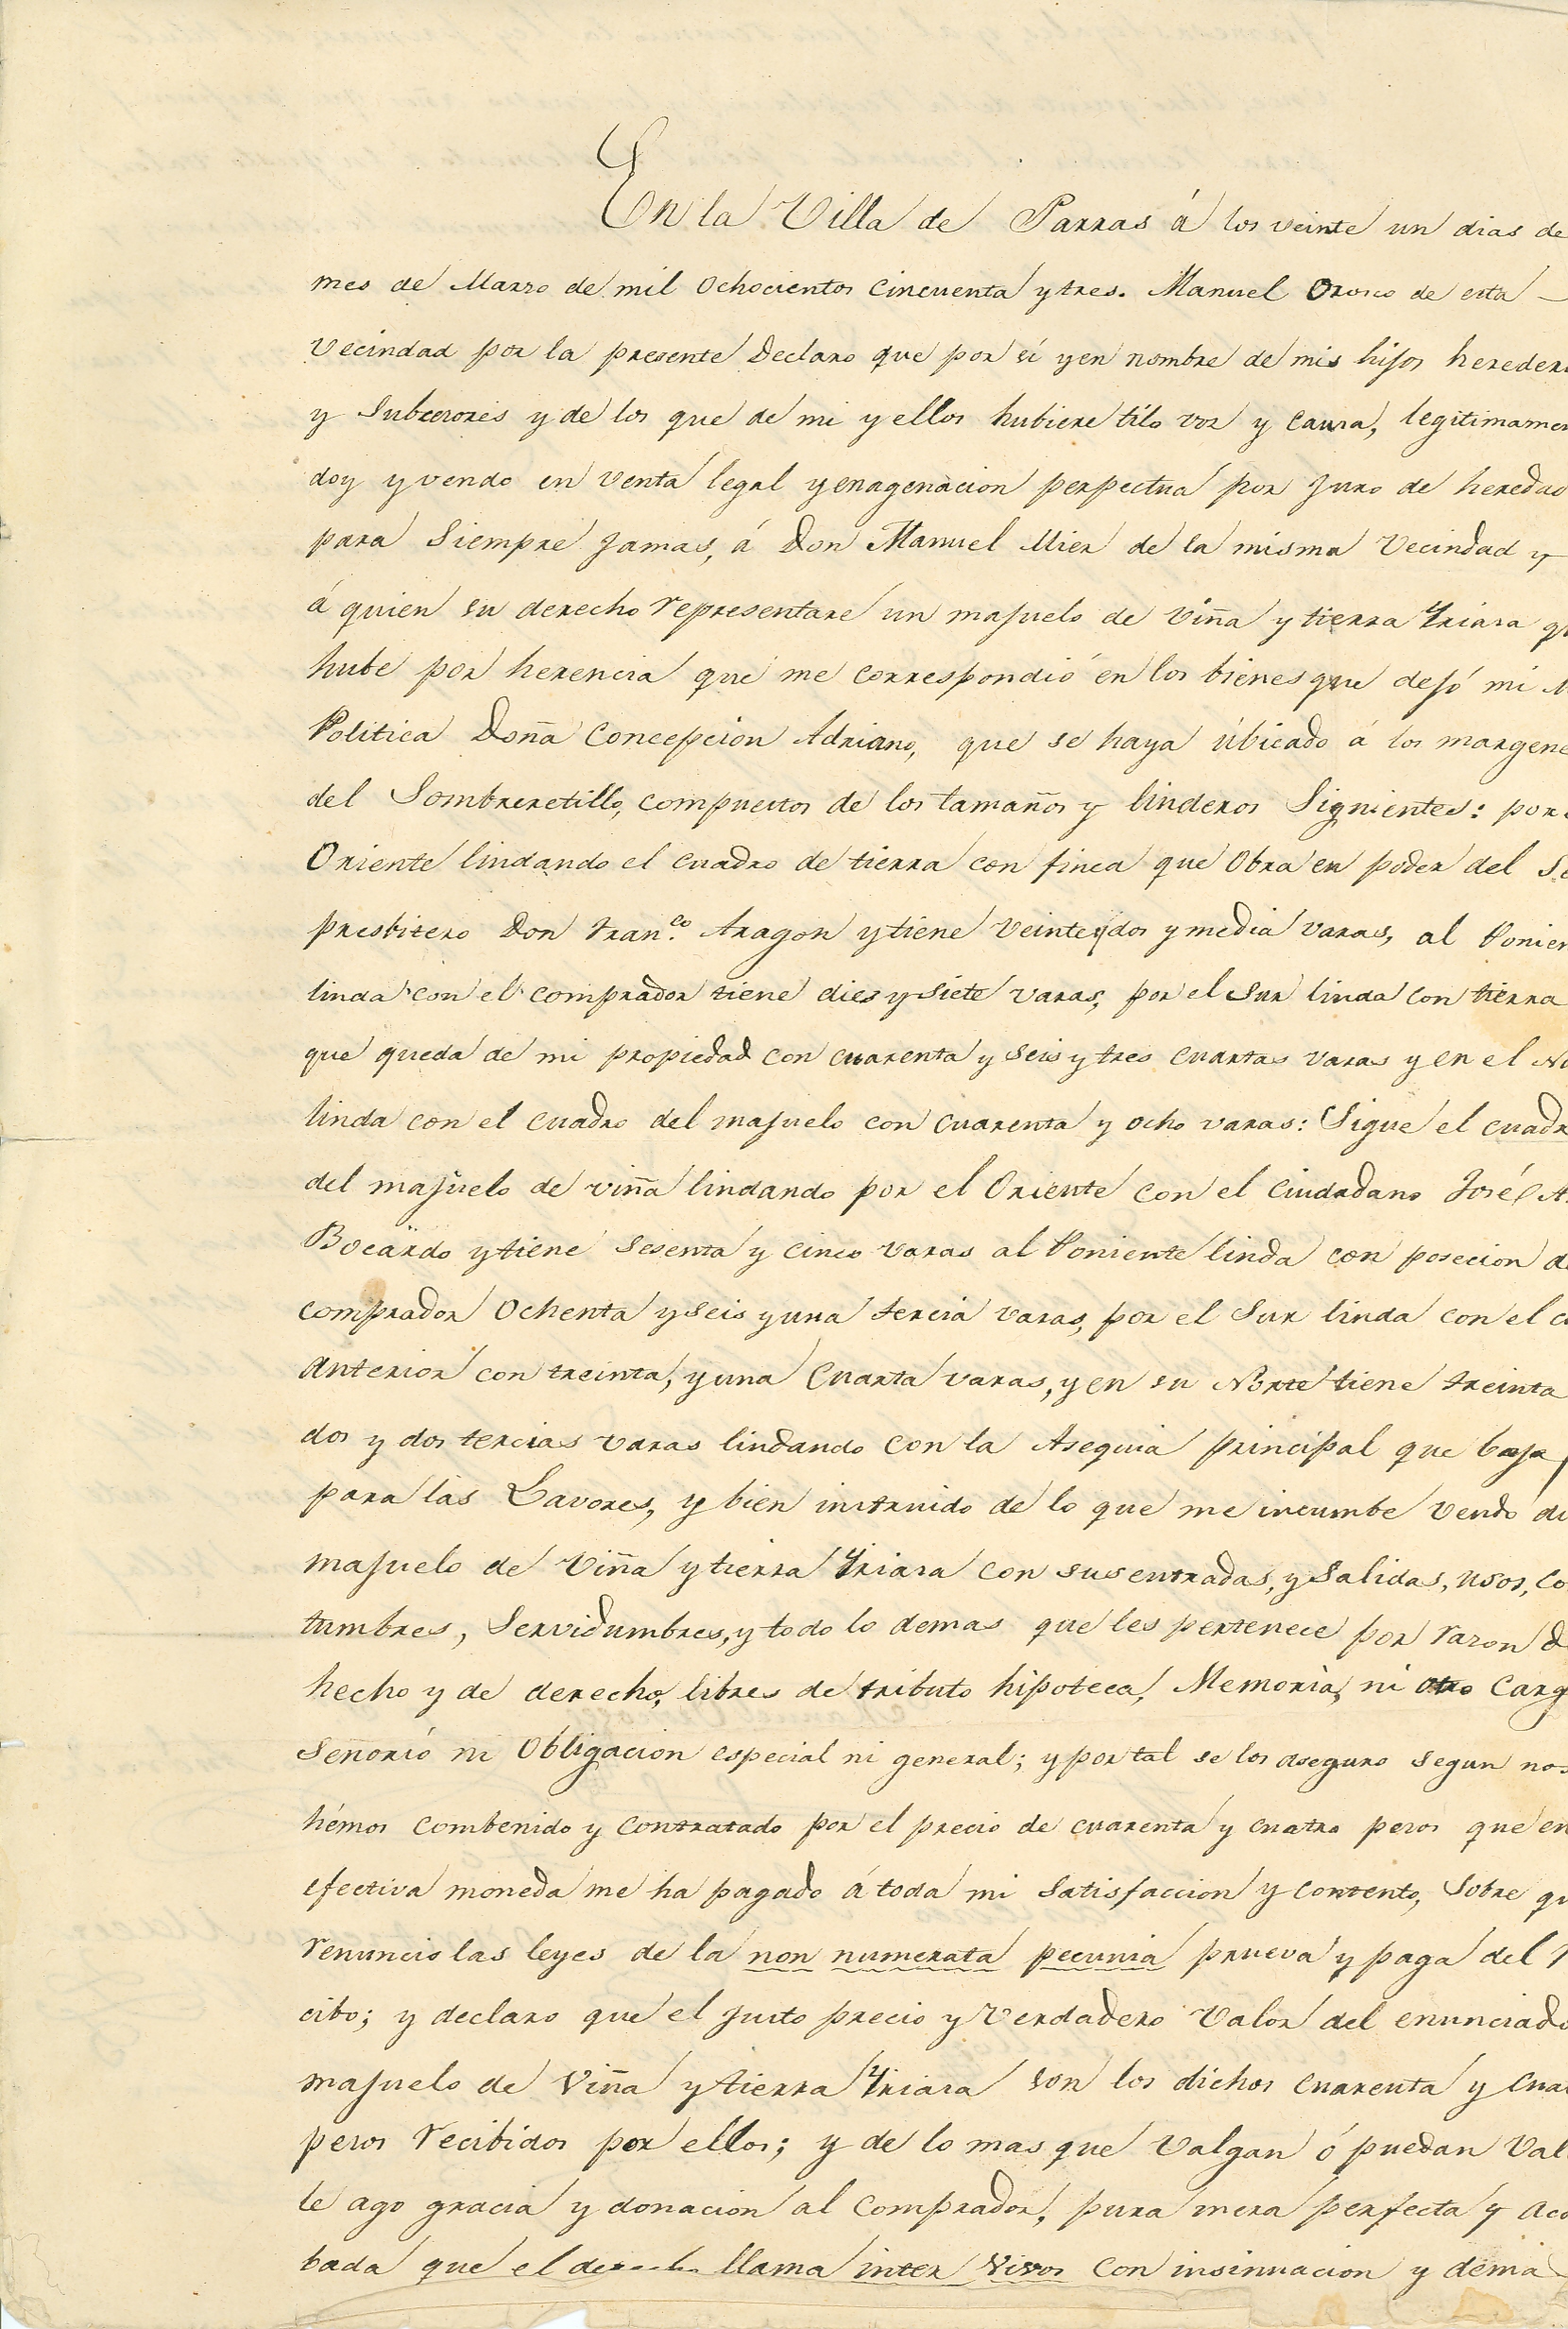 En la Villa de Parras á los veinte un dias de
mes de Marzo de mil ochocientos cincuenta y tres. Manuel Orosco de esta
vecindad por la presente Declaro que por sí y en nombre de mis hijos heredero
y Subcesores y de los que de mi y ellos hubiere titlo voz y causa, legitimamen
doy y vendo en venta legal y enagenacion perpectua por Juro de heredad
para Siempre Jamas, á Don Manuel Mier de la misma Vecindad y
á quien su derecho representare un majuelo de viña y tierra Yriasa qu
hube por herencia que me correspondió en los bienes que dejó mi M
Politica Doña Concepcion Adriano, que se haya úbicado á los margene
del Sombreretillo, compuestos de los tamaños y linderos Siguientes: por e
Oriente lindando el cuadro de tierra con finca que Obra en poder del Se
presbitero Don Fran.co Aragon y tiene veinte y dos y media varas, al Ponien
linda con el comprador tiene dies y siete varas, por el Sur linda con tierra
que queda de mi propiedad con cuarenta y seis y tres cuartas varas y en el No
linda con el cuadro del majuelo con cuarenta y ocho varas: Sigue el cuadr
del majuelo de viña lindando por el Oriente con el Ciudadano José A
Bocardo y tiene sesenta y cinco varas al Poniente linda con posecion de
comprador ochenta y seis y una tercia varas, por el Sur linda con el cu
anterior con treinta, y una cuarta varas, y en su Norte tiene treinta
dos y dos tercias varas lindando con la Asequia principal que baja
para las Lavores, y bien instruido de lo que me incumbe vendo di
majuelo de Viña y tierra Yriasa con sus entradas, y salidas, usos, Co
tumbres, Servidumbres, y todo lo demas que les pertenece por razon d
hecho y de derecho, libres de tributo hipoteca, Memoria, ni otro Carg
Señorió ni Obligacion especial ni general; y por tal se los aseguro segun nos
hémos combenido y contratado por el precio de cuarenta y cuatro pesos que en
efectiva moneda me ha pagado á toda mi Satisfaccion y contento, Sobre qu
renuncio las leyes de la non numerata pecunia prueva y paga del R
cibo; y declaro que el justo precio y Verdadero Valor del enunciado
majuelo de Viña y tierra Yriasa son los dichos cuarenta y cua
pesos recibidos por ellos; y de lo mas que Valgan ó puedan Val
le ago gracia y donacion al Comprador, pura mera perfecta y aca
bada que el derecho llama inter vivos con insinuacion y dema